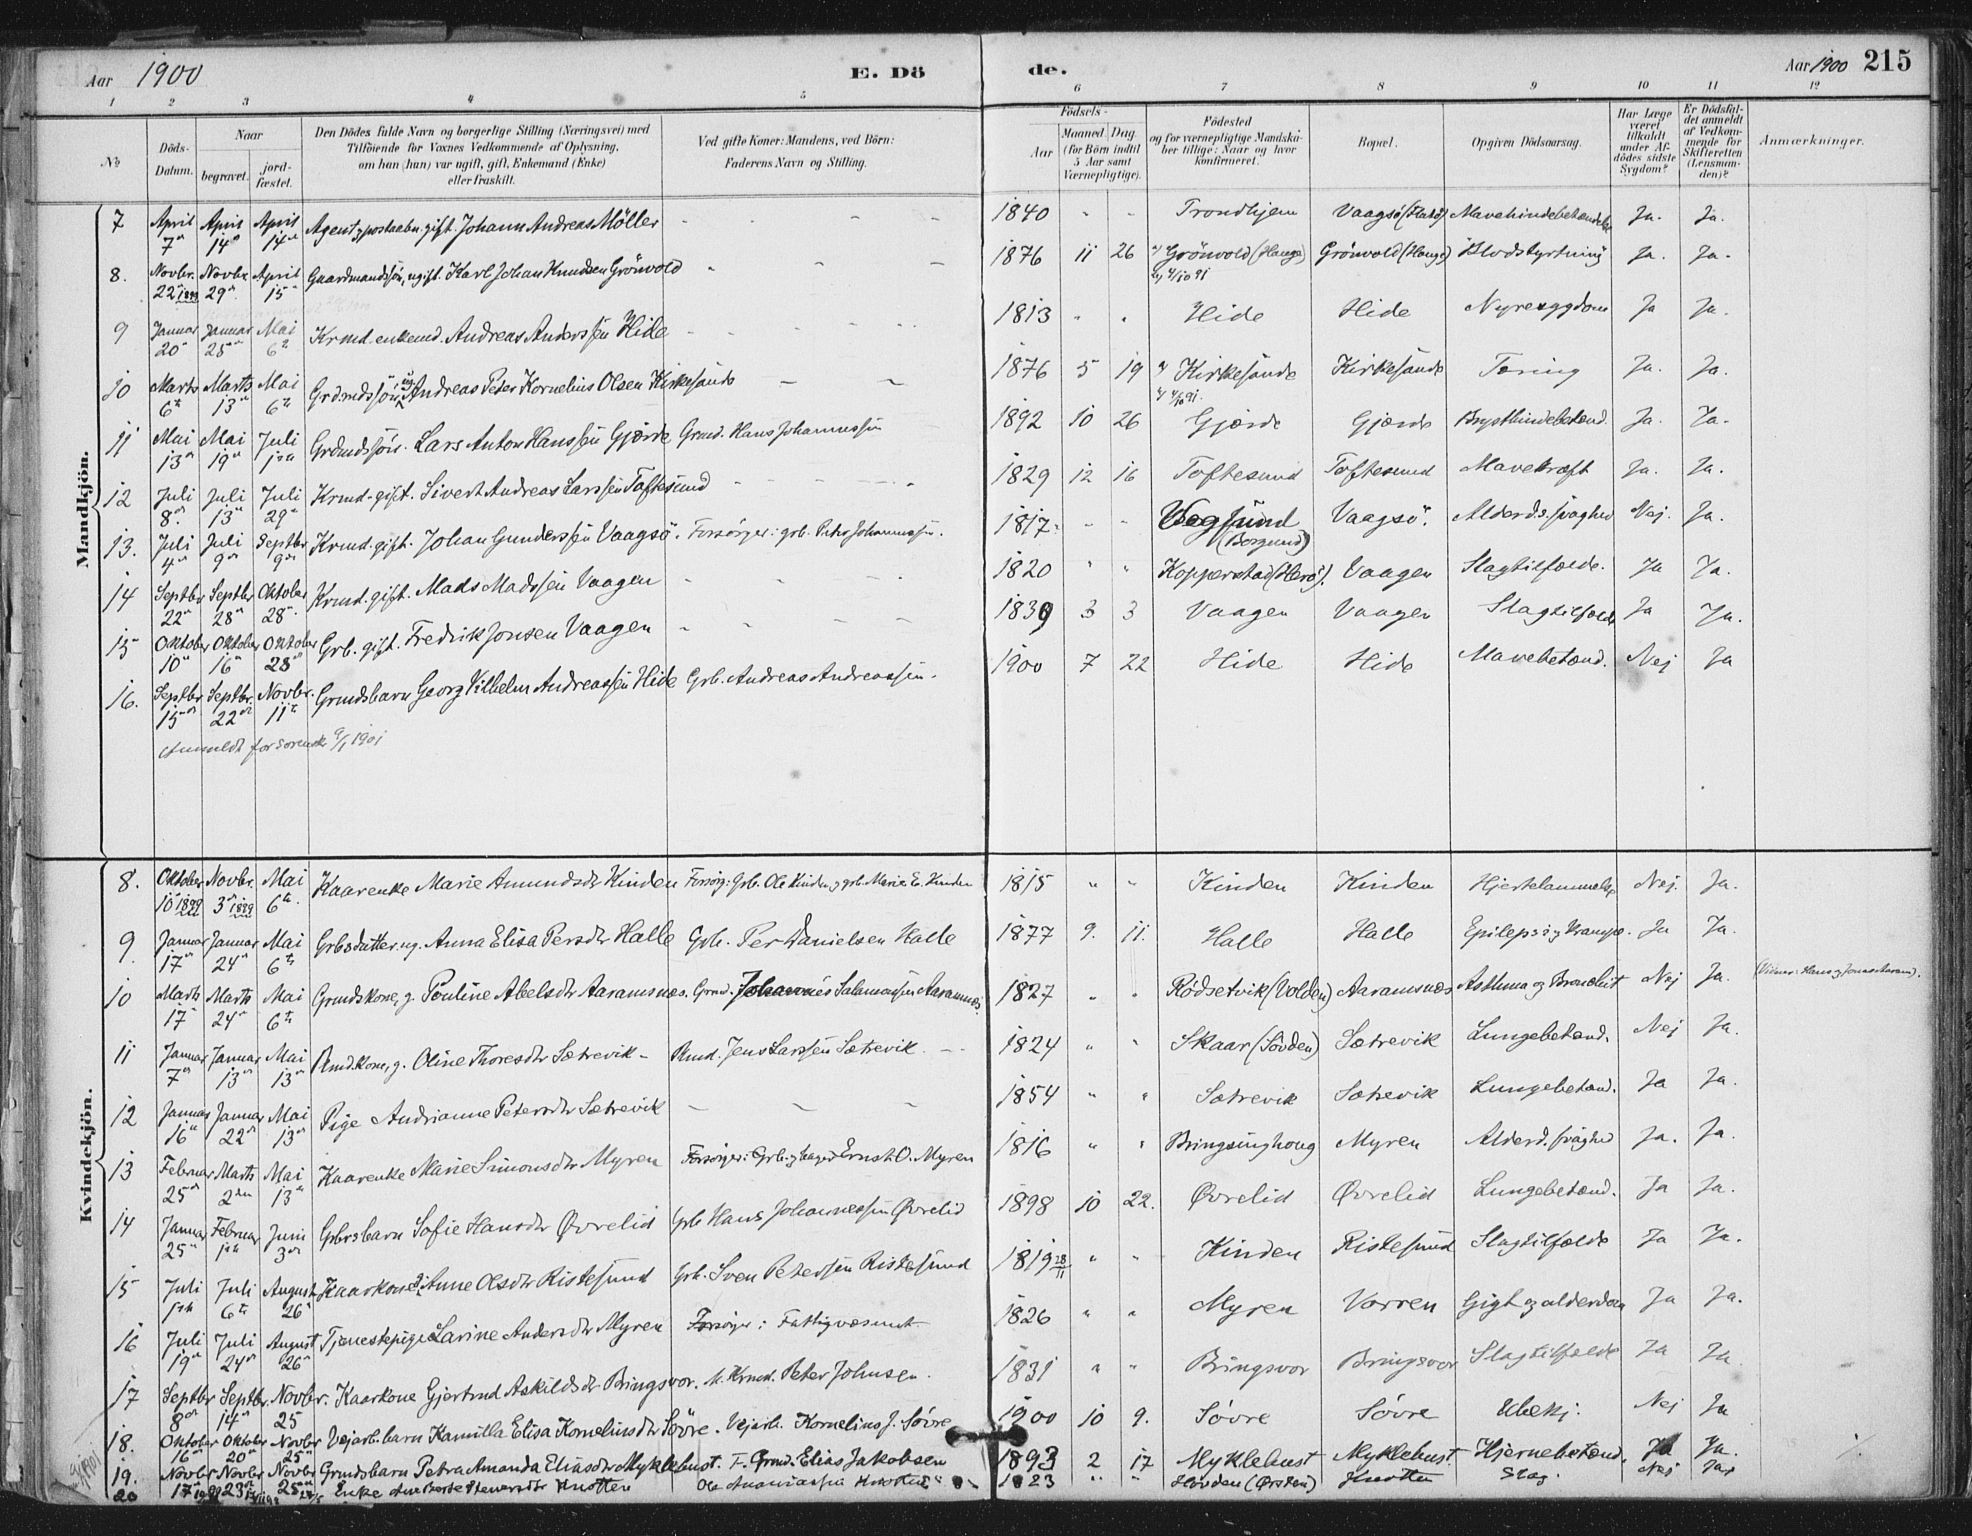 Aar 1900 E. Dö de. Aar 1900 215
1 2 3 4 5 6 7 8 9 10 11 12
No Döds-Datum. Naar begravet. jord-fæstet. Den Dödes fulde Navn og borgerlige Stilling (Næringsvei) med Tilföiende for Voxnes Vedkommende af Oplysning, om han (hun) var ugift, gift, Enkemand (Enke) eller fraskilt. Ved gifte Koner: Mandens, ved Börn: Faderens Navn og Stilling. Födsels- Aar Maaned Dag (for Börn indtil 5 Aar samt Værnepligtige). Födested og for værnepligtige Mandska-ber tillige: Naar og hvor konfirmeret. Bopæl. Opgiven Dödsaarsag. Har Læge været tilkaldt under Af-dödes sidste Sygdom? Er Dödsfal-det anmeldt af Vedkom-mende for Skifteretten (Lensman-den)? Anmærkninger.
Mandkjön.
7 April 7de April 14de April 14de Agent og postaabn. gift. Johann Andreas Möller 1840 Trondhjem Vaagsö Mavehindebetændelse Ja. Ja.
8. Novbr. 22 1899 Novbr. 29 April 15 Gaardmandssön, ugift. Karl Johan Knudsen Grönvold 1876 11 26 Grönvold (Hauge) Grönvold (Hauge) Blodstyrtning Ja. Ja.
9 Januar 20 Januar 25 Mai 6te Krmd. enkemd. Andreas Anderssen Hide 1813 Hide Hide Nyresygdom Ja Ja.
10 Marts 6te Marts 13 Mai 6te Grdmdssön, ug. Andreas Peter Kornelius Olsen Kirkesunde 1876 5 19 Kirkesunde Kirkesunde Tæring Ja. Ja.
11 Mai 13 Mai 19 Juli 1ste Grdmdssön. Lars Anton Hanssen Gjærde Grmd. Hans Johannessen 1892 10 26 Gjærde Gjærde Brysthindebetænd. Ja. Ja.
12 Juli 8de Juli 13 Juli 29 Krmd. gift. Sivert Andreas Larssen Toftesund 1829 12 16 Toftesund Toftesund Mavekræft Ja. Ja.
13. Juli 4 Juli 9 Septbr 9 Krmd. gift. Johan Gunderssen Vaagsö. Forsörger: grb. Peter Johannessen. 1817 Vegsund (Borgund) Vaagsö. Alderd.svaghed Nej. Ja.
14 Septbr 22 Septbr 28 Oktober 28 Krmd. gift. Mads Madssen Vaagen 1820 Kopperstad (Herö). Vaagen Slagtilfælde. Ja Ja.
15 Oktober 10 Oktober 16 Oktober 28 Grb. gift. Fredrik Jonsen Vaagen 1839 3 3 Vaagen Vaagen Slagtilfælde Ja Ja.
16. Septbr. 15 Septbr. 22 Novbr. 11te Grmdsbarn Georg Vilhelm Andreassen Hide Grb. Andreas Andreassen. 1900 7 22 Hide Hide Mavebetænd. Nej Ja
Anmeldt for Sorensk. 9/1 1901
Kvindekjön.
8. Oktober 10 1899 Novbr. 3 1899 Mai 6te Kaarenke Marie Amundsdtr Kinden Forsörg: Grb. Ole Kinden og grb. Marie E. Kinden 1815 Kinden Kinden Hjertelammelse Nej. Ja.
9 Januar 17 Januar 24 Mai 6te Grbsdatter, ug. Anna Elisa Persdtr Halle Grb. Per Danielsen Halle 1877 9. 11. Halle Halle Epilepsi og Krampe. Ja Ja.
10 Marts 17 Marts 24 Mai 6te Grmdskone, g. Pouline Abelsdtr Aaramsnæs. Grmd. Johannes Salamonsen Aaramsnæs 1827 Rødsetvik (Volden) Aaramsnæs Asthma og Bronchit Nej Ja. (Vidner: Hans og Jonas Aaram).
11 Januar 7 Januar 13 Mai 13 Rmd.kone, g. Oline Thoresdtr Sætrevik Rmd. Jens Larssen Sætrevik 1824 Skaar (Sövden) Sætrevik Lungebetænd. Nej Ja.
12 Januar 16 Januar 22 Mai 13 Pige Andrianne Petersdtr Sætrevik 1854 Sætrevik Sætrevik Lungebetænd. Ja Ja.
13 Februar 25 Marts 2den Mai 13 Kaarenke Marie Simonsdtr Myren Forsörger: Grb. og bager Ernst O. Myren 1816 Bringsinghoug Myren Alderd.svaghed Ja. Ja.
14 Januar 25 Februar 1ste Juni 3 Grbsbarn Sofie Hansdtr Øvrelid Grb Hans Johannessen Øvrelid 1898 10 22. Øvrelid Øvrelid Lungebetænd. Ja Ja.
15 Juli 1ste Juli 6te August 26 Kaarkone, Anne Olsdtr Ristesund Grb. Sven Petersen Ristesund 1819 28/11 Kinden Ristesund Slagtilfælde Ja Ja.
16 Juli 19 Juli 24 August 26 Tjenestepige Larine Andersdtr Myren Forsörger: Fattigvæsenet 1826 Myren Vorren Gigt og alderdom Ja Ja.
17 Septbr 8 Septbr. 14 Novbr. 25 Kaarkone Gjertrud Askildsdtr Bringsvor. M. Krmd. Peter Johnsen. 1831 Bringsvor Bringsvor Slagtilfælde Ja Ja.
18. Oktober 16 Oktober 20 Novbr 25 Vejarb.barn Kamilla Elisa Korneliusdtr Søvre. Vejarb. Kornelius J. Søvre 1900 10 9. Søvre Søvre Ubekj. Nej Ja
19. Novbr 17 Novbr 23 Novbr 25 Grmdsbarn Petra Amanda Eliasdtr Myklebust. F. Grmd. Elias Jakobsen 1893 2 17 Myklebust Myklebust Hjernebetænd. Ja Ja.
20 Enke Ane Berte Stenersdtr Knotten Ole Ananiassen Knotten 1823 Hovden (Ørsten) Knotten Slag. Nej Ja